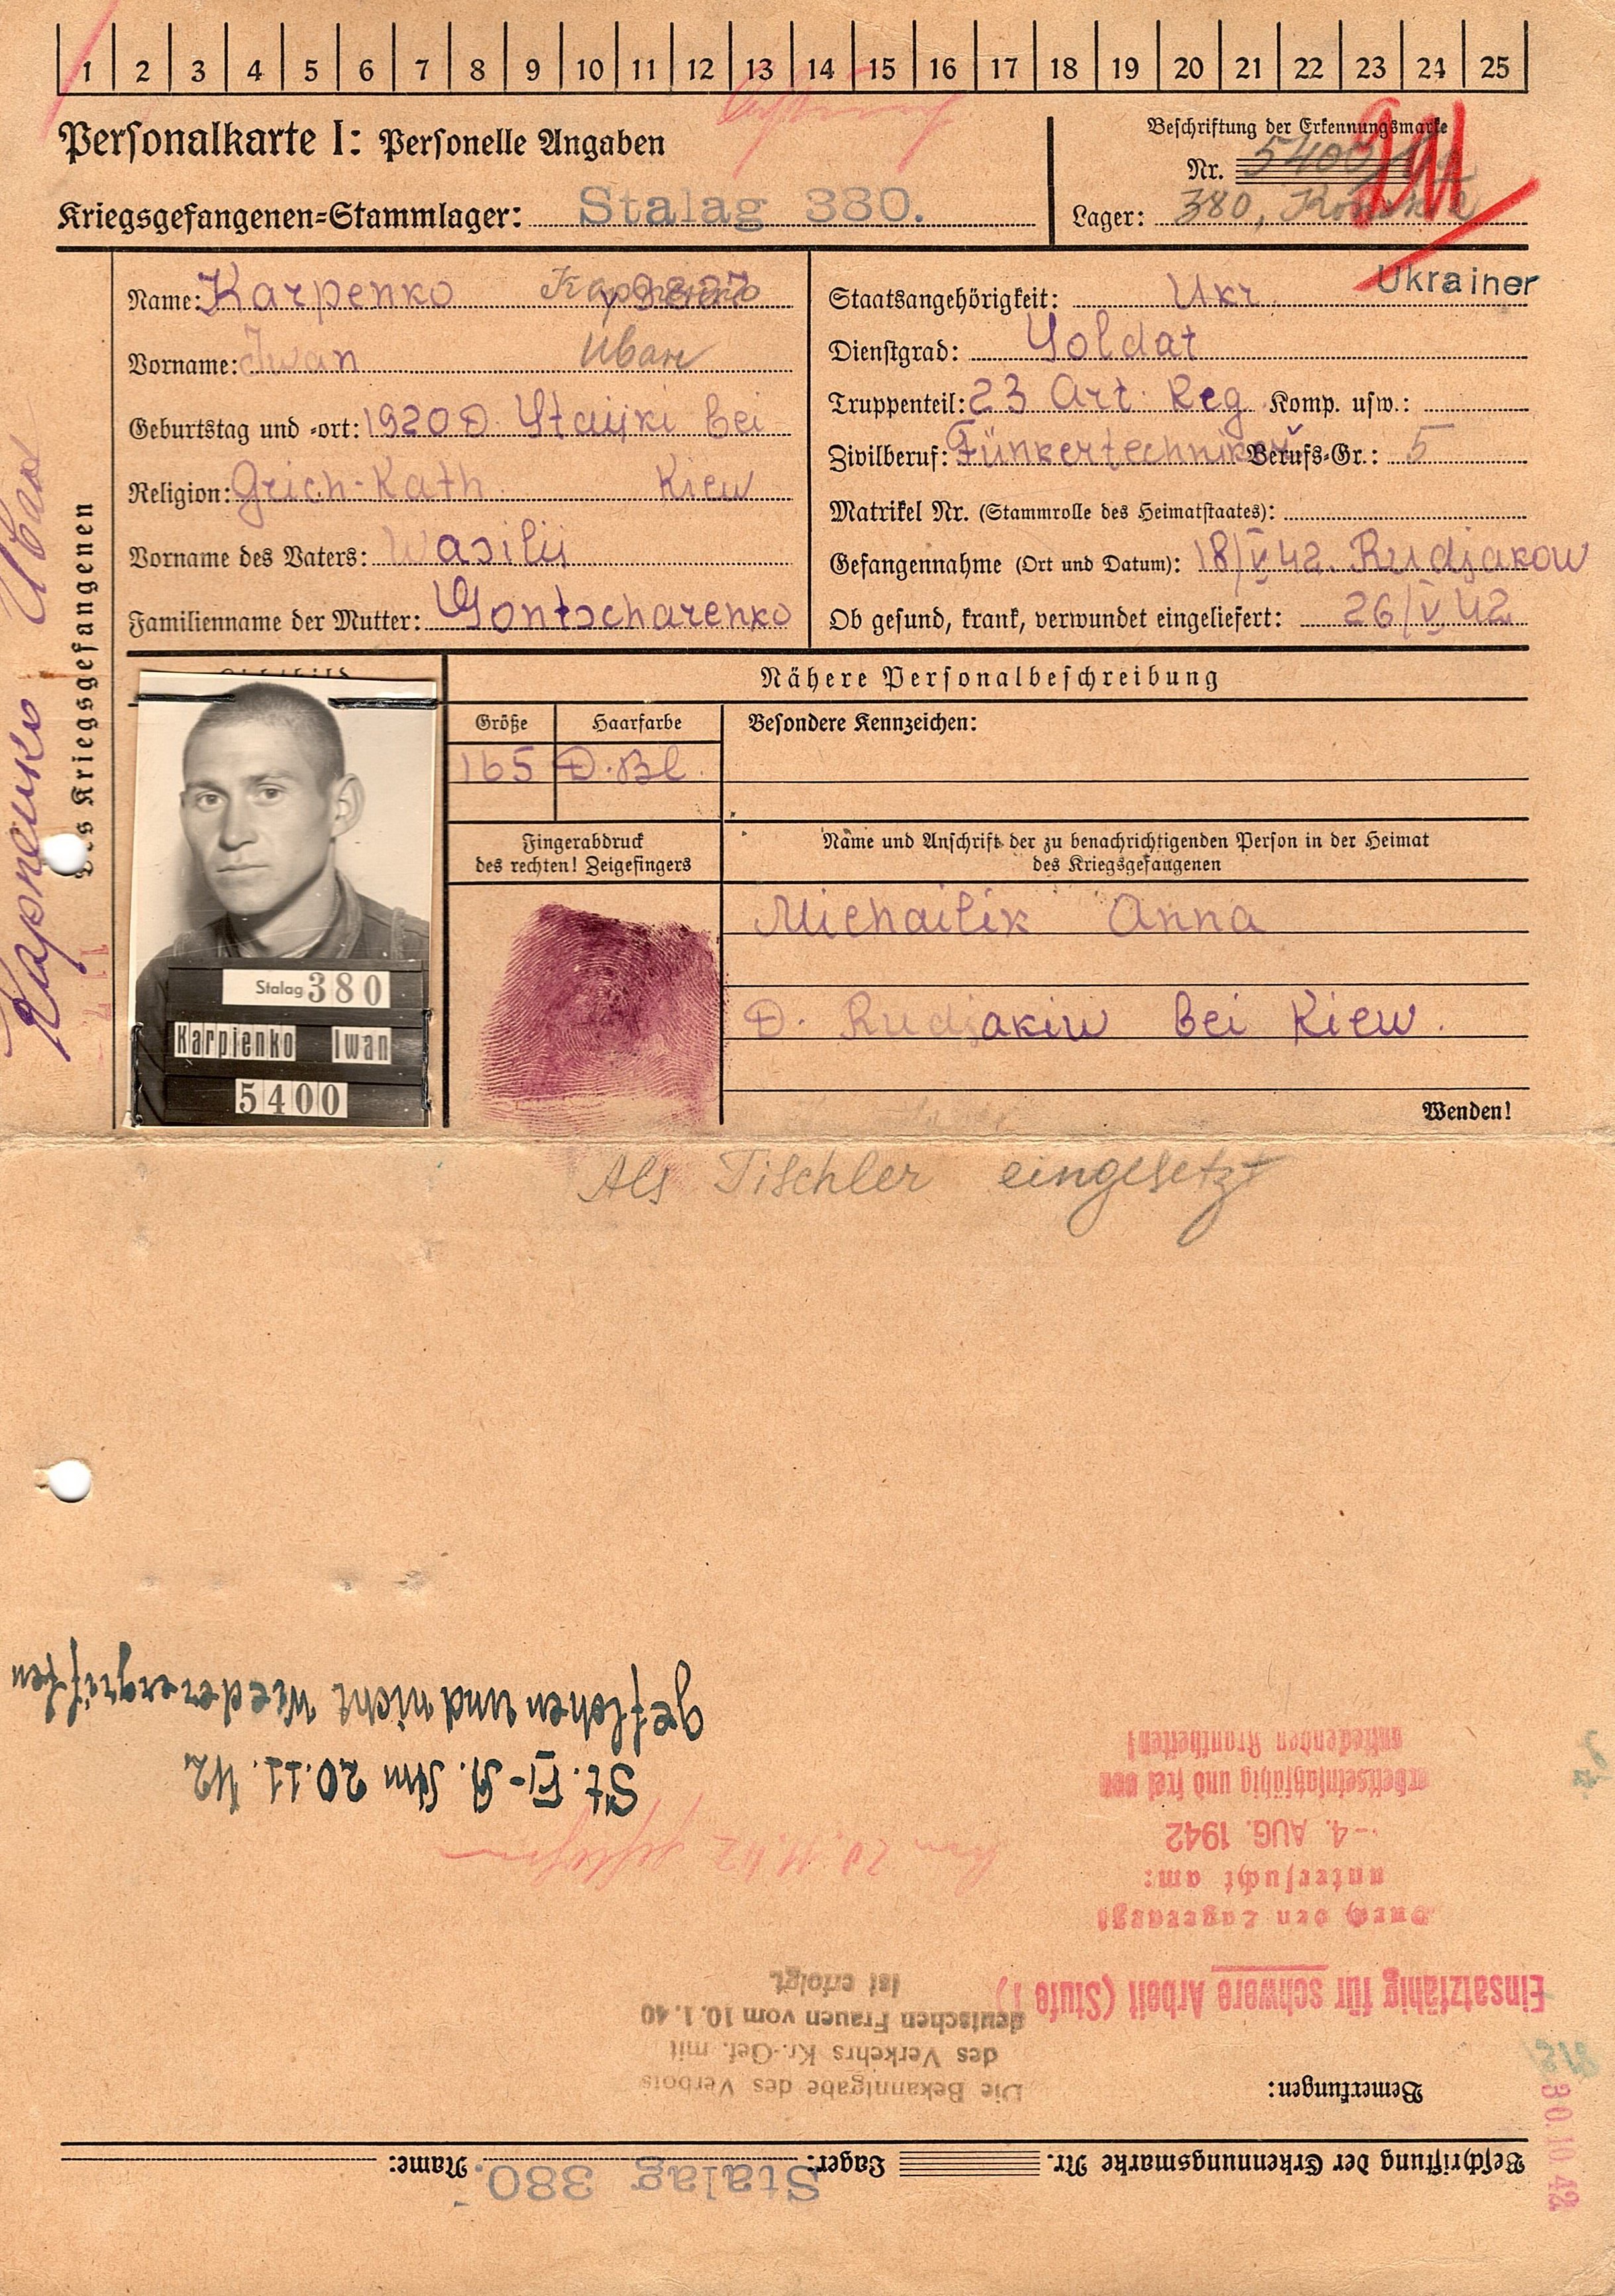 1 2 3 4 5 6 7 8 9 10 11 12 13 14 15 16 17 18 19 20 21 22 23 24 25
Personalkarte I: Personelle Angaben
Kriegsgefangenen=Stammlager: Stalag 380.
Beschriftung der Erkennungsmarke
Nr. 5400
Lager: 380,
des Kriegsgefangenen
Карпенко Иван
Name: Karpenko
Vorname: Iwan Иван
Geburtstag und =ort: 1920 D. Staijki bei
Religion: Grich-Kath Kiew
Vorname des Vaters: Wasilij
Familienname der Mutter: Gontscharenko
Staatsangehörigkeit: Ukr. Ukrainer
Dienstgrad: Soldat
Truppenteil: 23 Art. Reg Komp. usw.:
Zivilberuf: Fünkertechniker Berufs=Gr.: 5
Matrikel Nr. (Stammrolle des Heimatstaates):
Gefangennahme (Ort und Datum): 18/V 42. Rudjakow
Ob gesund, krank, verwundet eingeliefert: 26/V 42
Nähere Personalbeschreibung
Größe Haarfarbe Besondere Kennzeichen:
165 D.Bl.
Fingerabdruck
des rechten! Zeigefingers
Name und Anschrift der zu benachrichtigenden Person in der Heimat
des Kriegsgefangenen
Michailik Anna
D. Rudjakiw bei Kiew.
Stalag 380
Karpienko Iwan
5400
Wenden!
Als Tischler eingesetzt
Beschriftung der Erkennungsmarke Nr. Lager: Stalag 380. Name:
Bemerkungen:
30.10.42
Die Bekanntgabe des Verbots
des Verkehrs Kr.-Gef. mit
deutschen Frauen vom 10.1.40
ist erfolgt.
Einsatzfähig für schwere Arbeit (Stufe I)
Durch den Lagerarzt
untersucht am:
-4. AUG. 1942
arbeitseinsatzfähig und frei von
ansteckenden Krankheiten!
Am 20.11.42 geflohen
Am 20.11.42
geflohen und nicht wiederergriffen